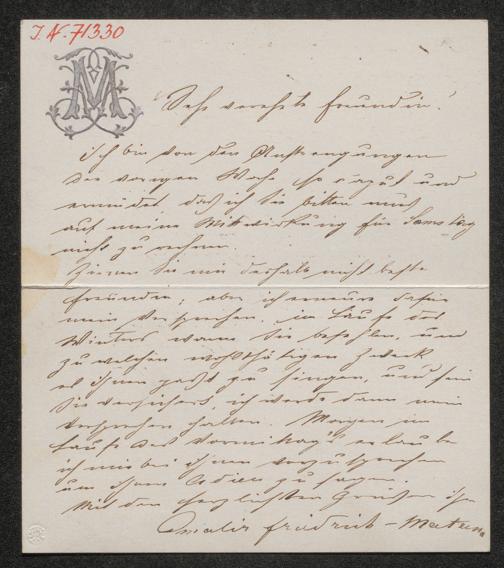 I. N. 71330
M
Sehr verehrte Freundin!
ich bin von den Anstrengungen
der vorigen Woche so und
ermüdet daß ich Sie bitten muß
auf meine Mitwirkung für Samstag
nicht zu rechnen.
Zürnen Sie mir deshalb nicht beste
Freundin, aber ich erneure dafür
mein Versprechen, im Laufe des
Winters wann Sie befehlen, und
zu welchem wohlthätigen Zweck
es Ihnen paßt zu singen, und sein
Sie versichert, ich werde dann mein
Versprechen halten. Morgen im
Laufe des Vormittags erlaube
ich mir bei Ihnen vorzusprechen
um Ihnen Adieu zu sagen.
Mit den herzlichsten Grüßen Ihre
Amalie Friedrich-Materna